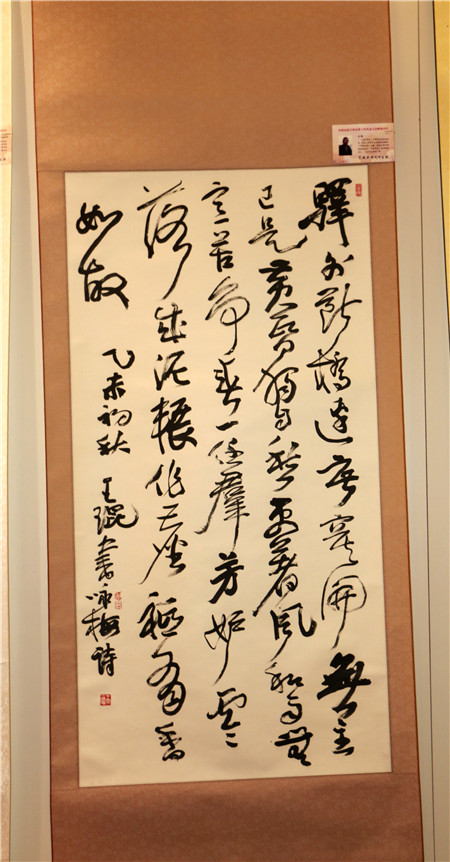 驛外斷橋邊寂寞開無主
已是黃昏獨自愁更著風和雨無
意苦爭春一任羣芳妒零
落成泥輾作塵秖有香
如故 乙未初秋 王琨書咏梅詩